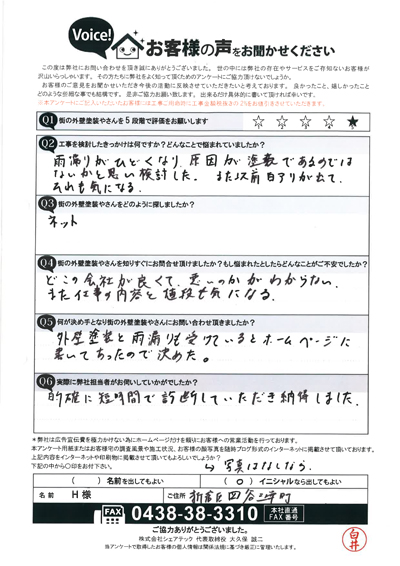 Voice!
お客様の声をお聞かせください
この度は弊社にお問い合わせを頂き誠にありがとうございました。世の中には弊社の存在やサービスをご存知ないお客様が
沢山いらっしゃいます。その方たちに弊社をよく知って頂くためのアンケートにご協力頂けないでしょうか。
お客様のご意見をお聞かせいただき今後の活動に反映させていただきたいと考えております。良かったこと、嬉しかったこと
どのような些細な事でも結構です。是非ご協力お願い致します。出来るだけ具体的に書いて頂ければ幸いです。
Q1 街の外壁塗装やさんを5段階で評価をお願いします
☆ ☆ ☆ ☆ ★
Q2 工事を検討したきっかけは何ですか?どんなことで悩まれていましたか?
雨漏りがひどくなり、原因が塗装であるのでは
ないかと思い検討した。また以前白アリが出て、
それも気になる。
Q3 街の外壁塗装やさんをどのように探しましたか?
ネット
Q4 街の外壁塗装やさんを知りすぐにお問合せ頂けましたか?もし悩まれたとしたらどんなことがご不安でしたか?
どこの会社が良くて、悪いのかがわからない、
また仕事の内容と値段も気になる。
Q5 何が決め手となり街の外壁塗装やさんにお問い合わせ頂きましたか?
外壁塗装と雨漏りも受けているとホームページに
書いてあったので決めた。
Q6 実際に弊社担当者がお伺いしていかがでしたか?
的確に短時間で診断していただき納得しました。
*弊社は広告宣伝費を極力かけない為にホームページだけを頼りにお客様への営業活動を行っております。
本アンケート用紙またはお客様宅の調査風景や施工状況、お客様の顔写真を随時ブログ形式のインターネットに掲載させて頂いております。
上記内容をインターネットや印刷物に掲載させて頂いてもよろしいでしょうか?
下記の中から○印をお付下さい。
↳ 写真はなしなら。
( )名前を出してもよい (○)イニシャルなら出してもよい
名前 H様 ご住所 新宿区四谷三栄町
FAX 0438-38-3310 本社直通 FAX番号
ご協力ありがとうございました。
株式会社シェアテック 代表取締役 大久保 誠二
当アンケートで取得したお客様の個人情報は関係法規に基づき厳正に管理いたします。
白井